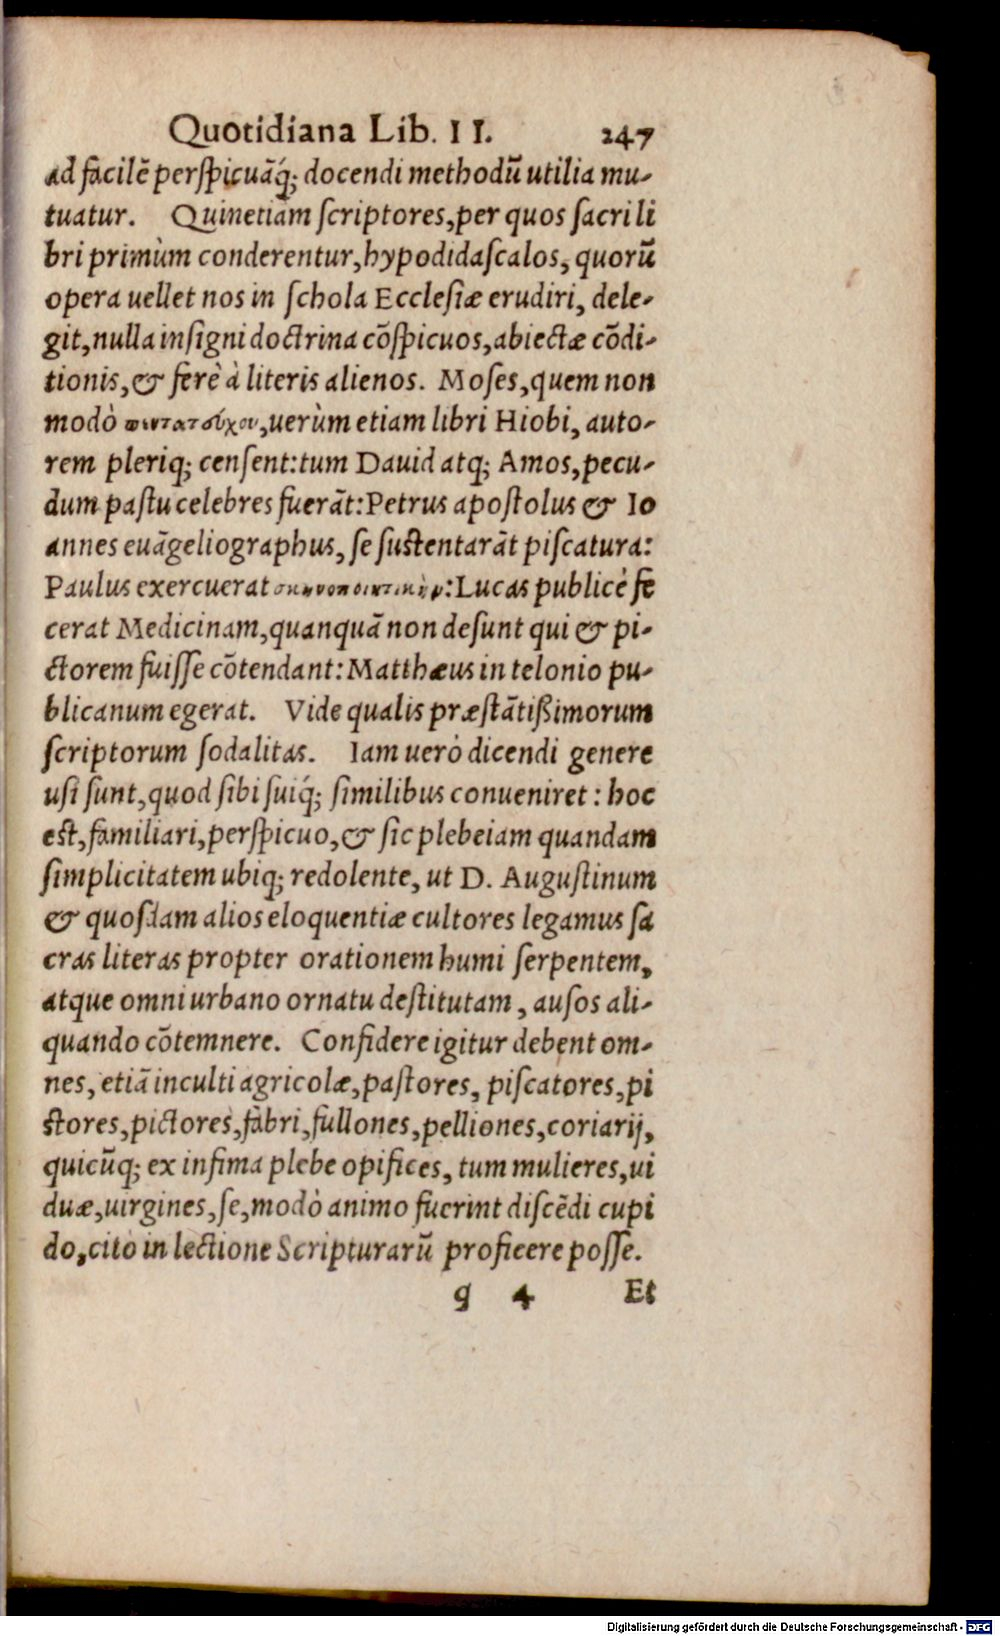 Quotidiana Lib. II. 247
ad facilē perſpicuāq́; docendi methodū utilia mu-
tuatur. Quinetiam ſcriptores, per quos ſacri li
bri primùm conderentur, hypodidaſcalos, quorū
opera uellet nos in ſchola Eccleſiæ erudiri, dele-
git, nulla inſigni doctrina cōſpicuos, abiectæ cōdi-
tionis, & ferè à literis alienos. Moſes, quem non
modò πεντατεύχου, uerùm etiam libri Hiobi, auto-
rem pleriq; cenſent: tum Dauid atq; Amos, pecu-
dum paſtu celebres fuerāt: Petrus apoſtolus & Io
annes euāgeliographus, ſe ſuſtentarāt piſcatura:
Paulus exercuerat σκηνοποιητικὴν: Lucas publicè fe
cerat Medicinam, quanquā non deſunt qui & pi-
ctorem fuiſſe cōtendant: Matthæus in telonio pu-
blicanum egerat. Vide qualis præſtātißimorum
ſcriptorum ſodalitas. Iam uerò dicendi genere
uſi ſunt, quod ſibi ſuiq́; ſimilibus conueniret: hoc
eſt, familiari, perſpicuo, & ſic plebeiam quandam
ſimplicitatem ubiq; redolente, ut D. Auguſtinum
& quoſdam alios eloquentiæ cultores legamus ſa
cras literas propter orationem humi ſerpentem,
atque omni urbano ornatu deſtitutam, auſos ali-
quando cōtemnere. Confidere igitur debent om-
nes, etiā inculti agricolæ, paſtores, piſcatores, pi
ſtores, pictores, fabri, fullones, pelliones, coriarij,
quicūq; ex infima plebe opifices, tum mulieres, ui
duæ, uirgines, ſe, modò animo fuerint diſcēdi cupi
do, citò in lectione Scripturarū proficere poſſe.
q 4 Et
Digitalisierung gefördert durch die Deutsche Forschungsgemeinschaft - DFG